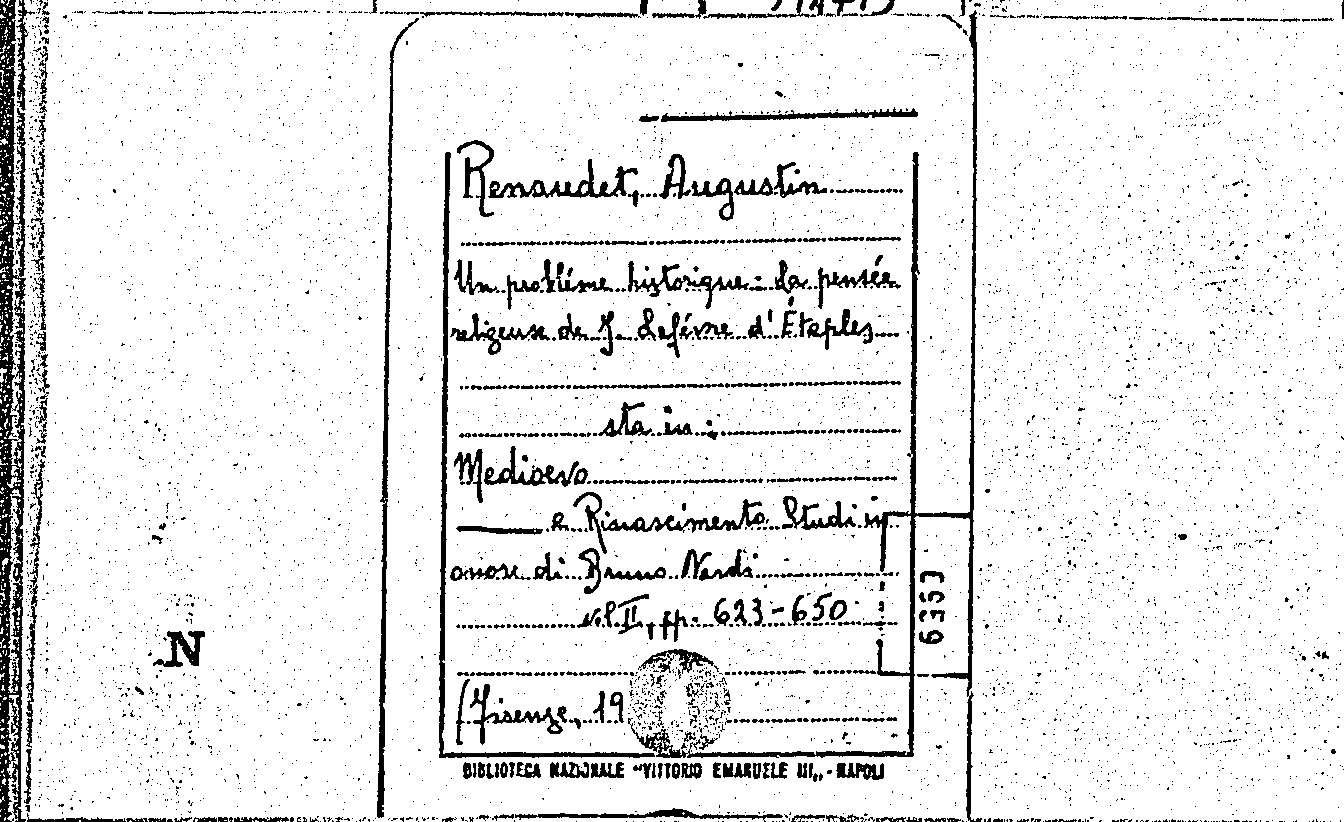 Renaudet, Augustin
Un probléme historique: La pensée
religeuse de J. Lefévre d'Étaples
sta in:
Medioevo
e Rinascimento Studi in
onore di Bruno Nardi
vol II, pp. 623-650
6353
N
(Firenze, 19
BIBLIOTECA NAZIONALE "VITTORIO EMANUELE III„ - NAPOLI